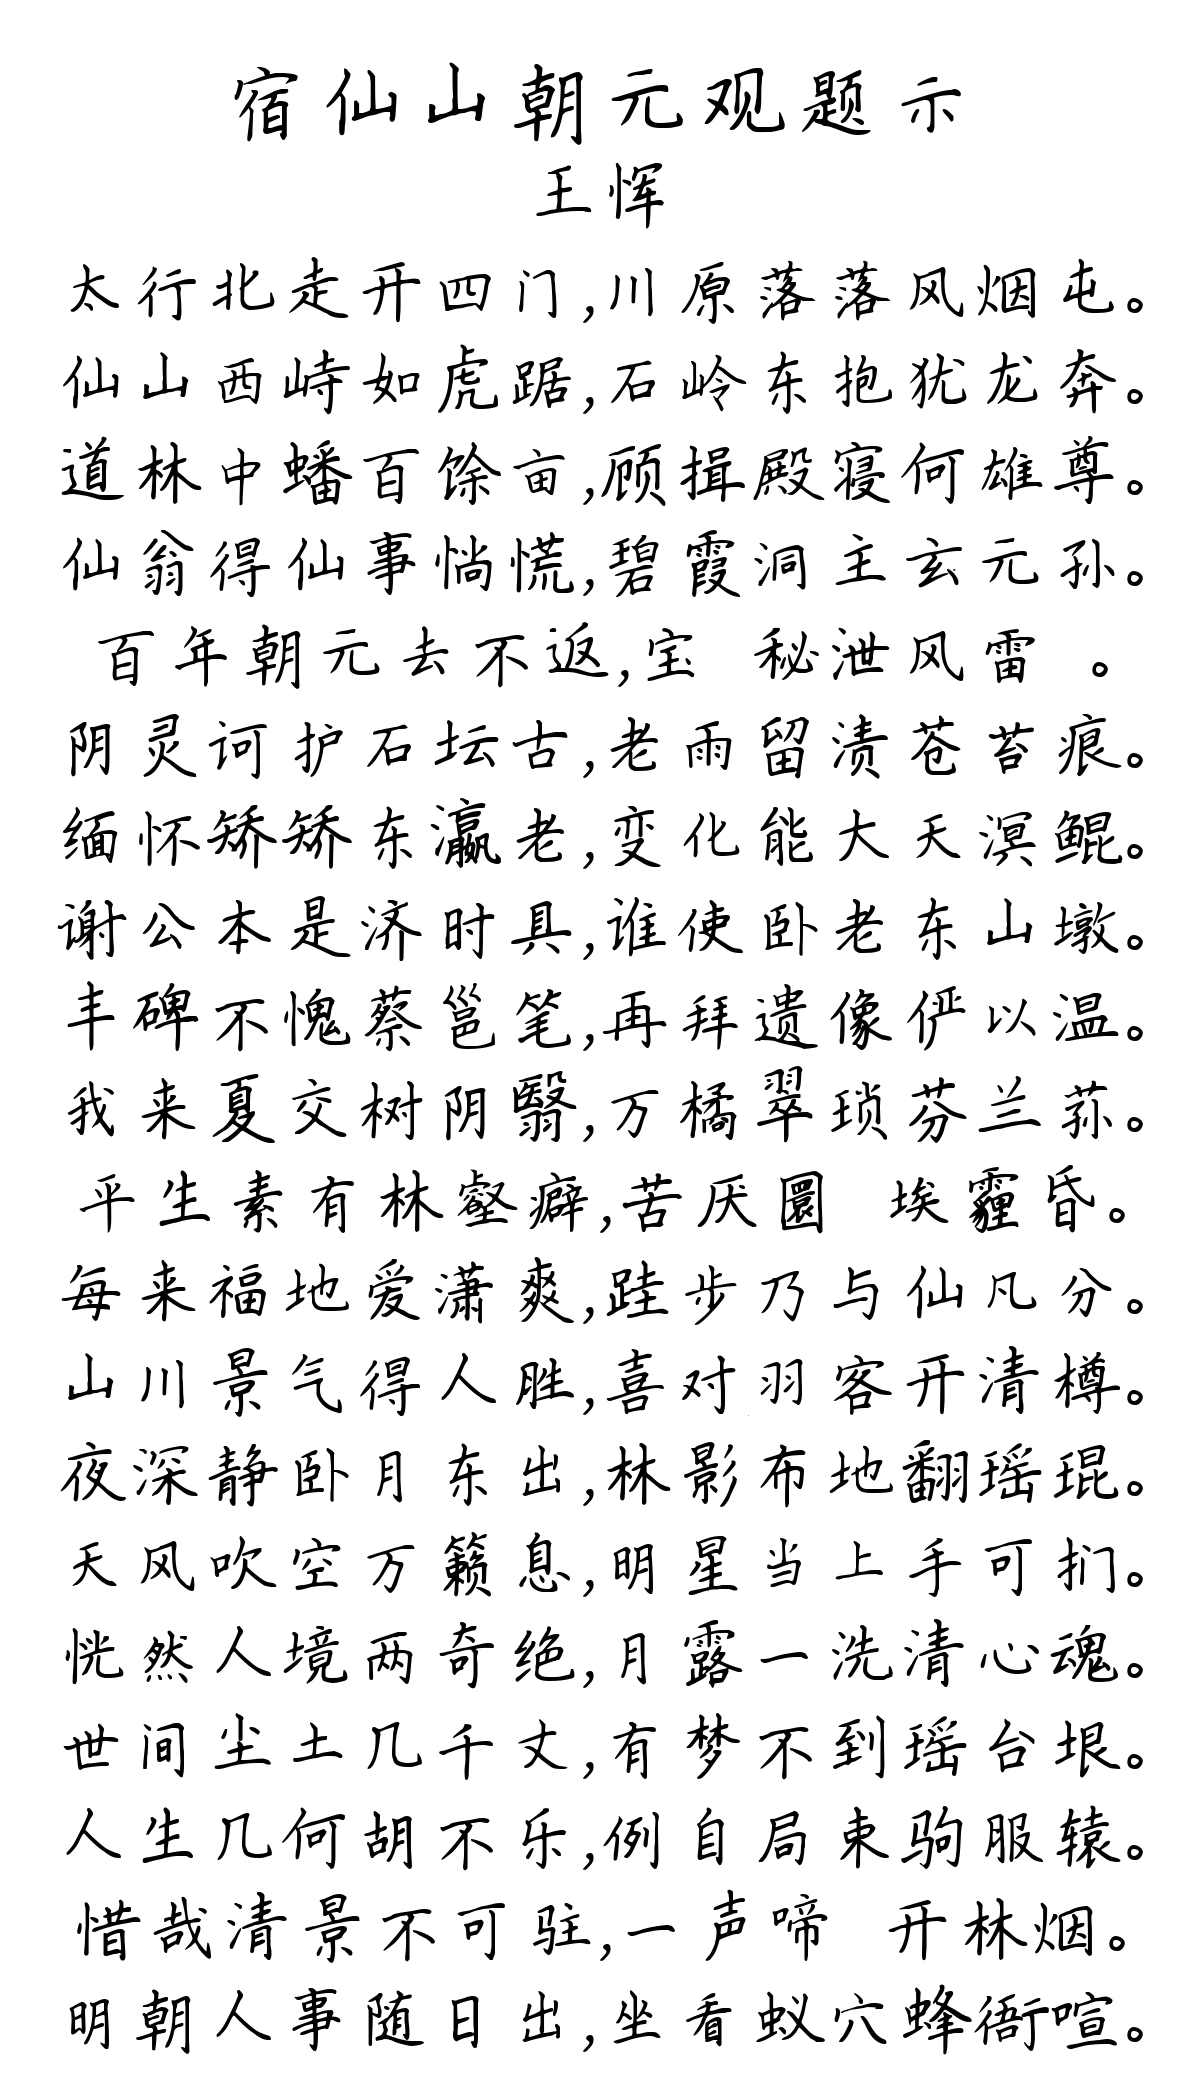 宿仙山朝元观题示
王恽
太行北走开四门,川原落落风烟屯。
仙山西峙如虎踞,石岭东抱犹龙奔。
道林中蟠百馀亩,顾揖殿寝何雄尊。
仙翁得仙事惝慌,碧霞洞主玄元孙。
百年朝元去不返,宝 秘泄风雷 。
阴灵诃护石坛古,老雨留渍苍苔痕。
缅怀矫矫东瀛老,变化能大天溟鲲。
谢公本是济时具,谁使卧老东山墩。
丰碑不愧蔡邕笔,再拜遗像俨以温。
我来夏交树阴翳,万橘翠琐芬兰荪。
平生素有林壑癖,苦厌圜 埃霾昏。
每来福地爱潇爽,跬步乃与仙凡分。
山川景气得人胜,喜对羽客开清樽。
夜深静卧月东出,林影布地翻瑶琨。
天风吹空万籁息,明星当上手可扪。
恍然人境两奇绝,月露一洗清心魂。
世间尘土几千丈,有梦不到瑶台垠。
人生几何胡不乐,例自局束驹服辕。
惜哉清景不可驻,一声啼 开林烟。
明朝人事随日出,坐看蚁穴蜂衙喧。